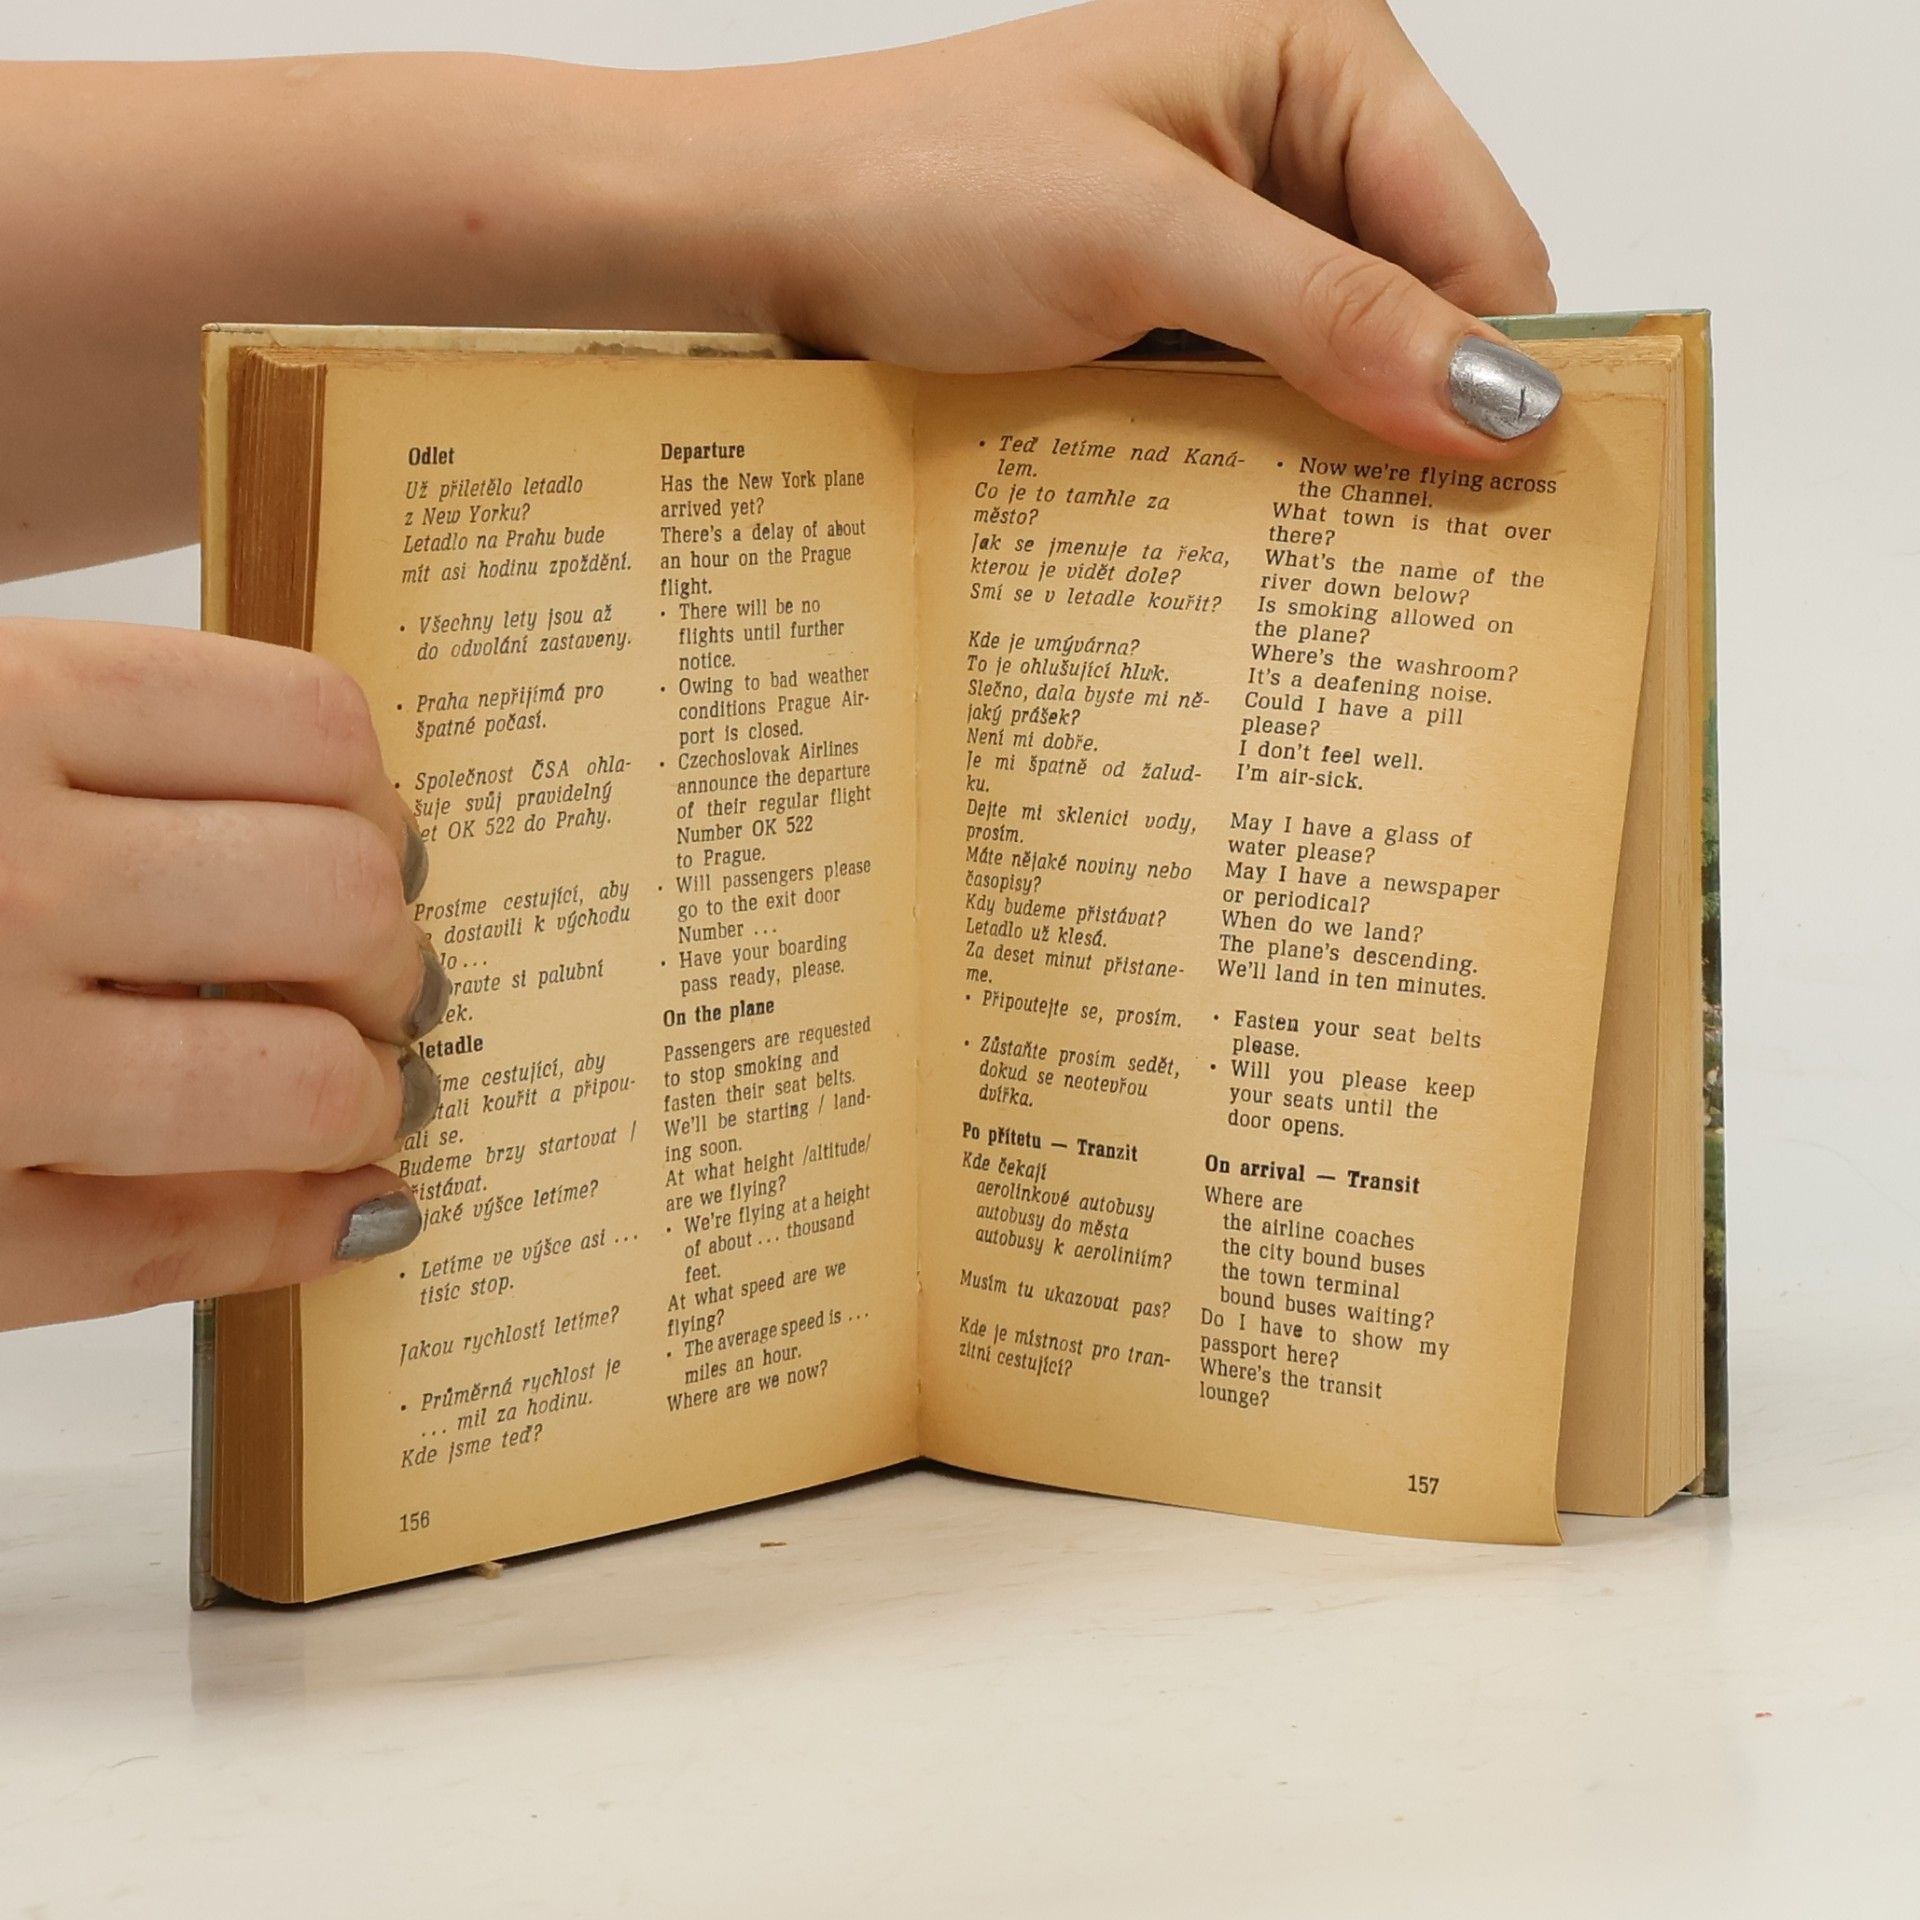 Odlet
Už přiletělo letadlo
z New Yorku?
Letadlo na Prahu bude
mít asi hodinu zpoždění.
• Všechny lety jsou až
do odvolání zastaveny.
• Praha nepřijímá pro
špatné počasí.
• Společnost ČSA ohla-
šuje svůj pravidelný
et OK 522 do Prahy.
Prosíme cestující, aby
dostavili k východu
lo ...
si palubní
letadle
cestující, aby
kouřit a připou-
se.
Budeme brzy startovat /
jaké výšce letíme?
• Letíme ve výšce asi ...
tisíc stop.
Jakou rychlostí letíme?
• Průměrná rychlost je
... mil za hodinu.
Kde jsme teď?
156
Departure
Has the New York plane
arrived yet?
There's a delay of about
an hour on the Prague
flight.
• There will be no
flights until further
notice.
• Owing to bad weather
conditions Prague Air-
port is closed.
• Czechoslovak Airlines
announce the departure
of their regular flight
Number OK 522
to Prague.
• Will passengers please
go to the exit door
Number ...
• Have your boarding
pass ready, please.
On the plane
Passengers are requested
to stop smoking and
fasten their seat belts.
We'll be starting / land-
ing soon.
At what height /altitude/
are we flying?
• We're flying at a height
of about ... thousand
feet.
At what speed are we
flying?
• The average speed is ...
miles an hour.
Where are we now?
• Teď letíme nad Kaná-
lem.
Co je to tamhle za
město?
Jak se jmenuje ta řeka,
kterou je vidět dole?
Smí se v letadle kouřit?
Kde je umývárna?
To je ohlušující hluk.
Slečno, dala byste mi ně-
jaký prášek?
Není mi dobře.
Je mi špatně od žalud-
ku.
Dejte mi sklenici vody,
prosím.
Máte nějaké noviny nebo
časopisy?
Kdy budeme přistávat?
Letadlo už klesá.
Za deset minut přistane-
me.
• Připoutejte se, prosím.
• Zůstaňte prosím sedět,
dokud se neotevřou
dvířka.
Po přítetu — Tranzit
Kde čekají
aerolinkové autobusy
autobusy do města
autobusy k aeroliniím?
Musím tu ukazovat pas?
Kde je místnost pro tran-
zitní cestující?
• Now we're flying across
the Channel.
What town is that over
there?
What's the name of the
river down below?
Is smoking allowed on
the plane?
Where's the washroom?
It's a deafening noise.
Could I have a pill
please?
I don't feel well.
I'm air-sick.
May I have a glass of
water please?
May I have a newspaper
or periodical?
When do we land?
The plane's descending.
We'll land in ten minutes.
• Fasten your seat belts
please.
• Will you please keep
your seats until the
door opens.
On arrival — Transit
Where are
the airline coaches
the city bound buses
the town terminal
bound buses waiting?
Do I have to show my
passport here?
Where's the transit
lounge?
157